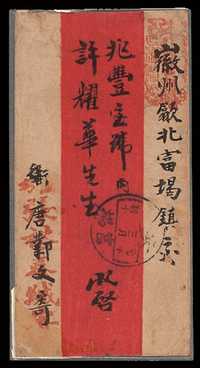 徽州歙北富堨鎮交
兆豐宝號內
許耀華先生 啟
衢 唐鄭文寄